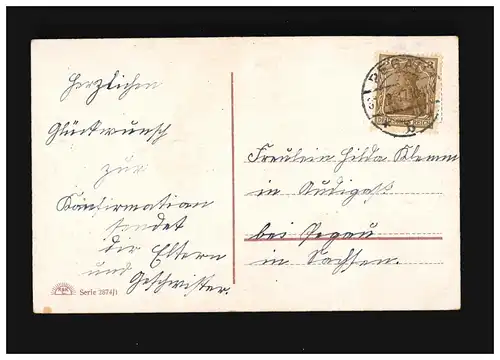 Herzlichen
Glückwunsch
zur
Konfirmation
sendet
die Eltern
und
Geschwister.
Serie 3874/1
PEGAU
DEUTSCHES REICH
Fräulein Hilda Klemm
in Audigast
bei Pegau
in Sachsen.